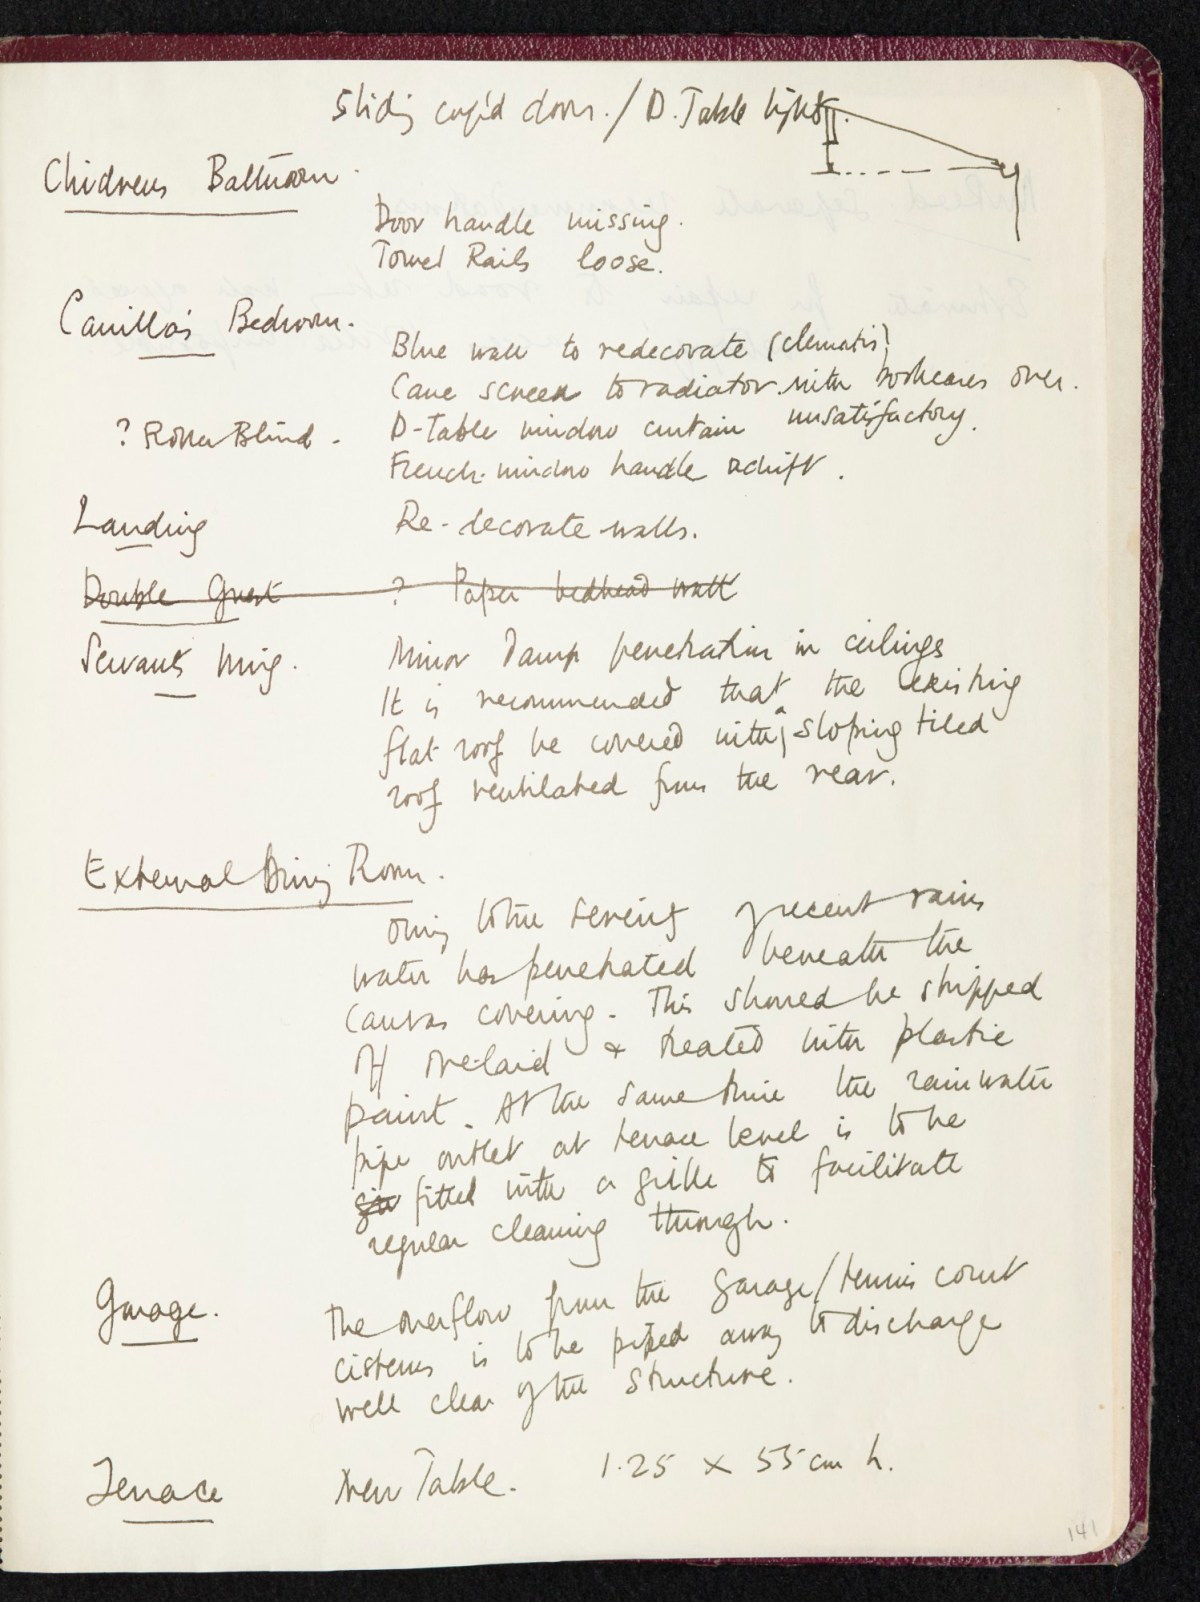 Sliding cup'd doors. / D. Table light.
Childrens Bathroom.
Door handle missing.
Towel Rails loose.
Camilla's Bedroom.
Blue wall to redecorate (clematis)
Cane screen to radiator with bookcases over.
? Roller Blind - D-Table window curtain unsatisfactory.
French window handle adrift.
Landing Re-decorate walls.
Double Guest ? Paper bedhead wall
Servants Wing. Minor Damp penetration in ceilings
It is recommended that the existing
flat roof be covered with a sloping tiled
roof ventilated from the rear.
External Dining Room.
Owing to the severity of recent rains
water has penetrated beneath the
canvas covering. This should be stripped
off re-laid & treated with plastic
paint. At the same time the rainwater
pipe outlet at terrace level is to be
fitted with a grille to facilitate
regular cleaning through.
Garage. The overflow from the garage/tennis court
cisterns is to be piped away to discharge
well clear of the structure.
Terrace New Table. 1.25 x 55 cm h.
141